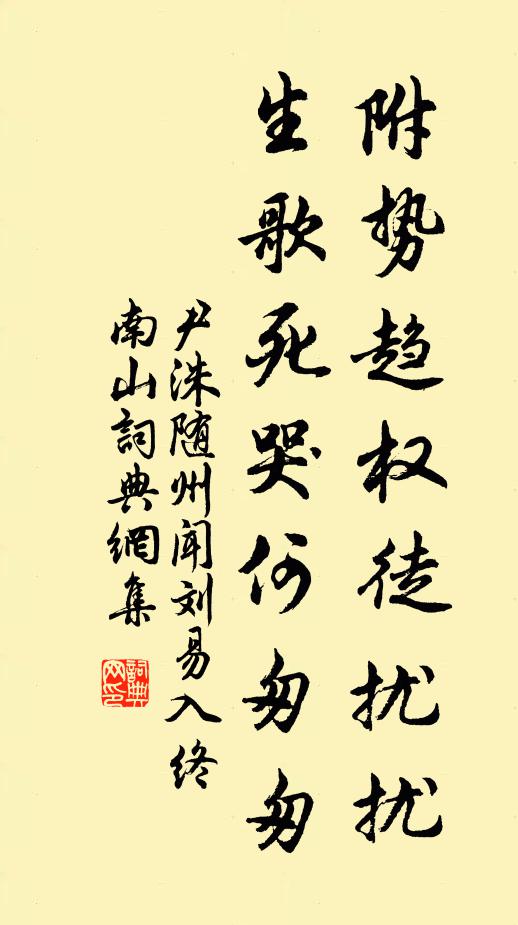 附势趋权徒扰扰
生歌死哭何匆匆
尹洙随州闻刘易入终
南山詞典網集
詞典网印